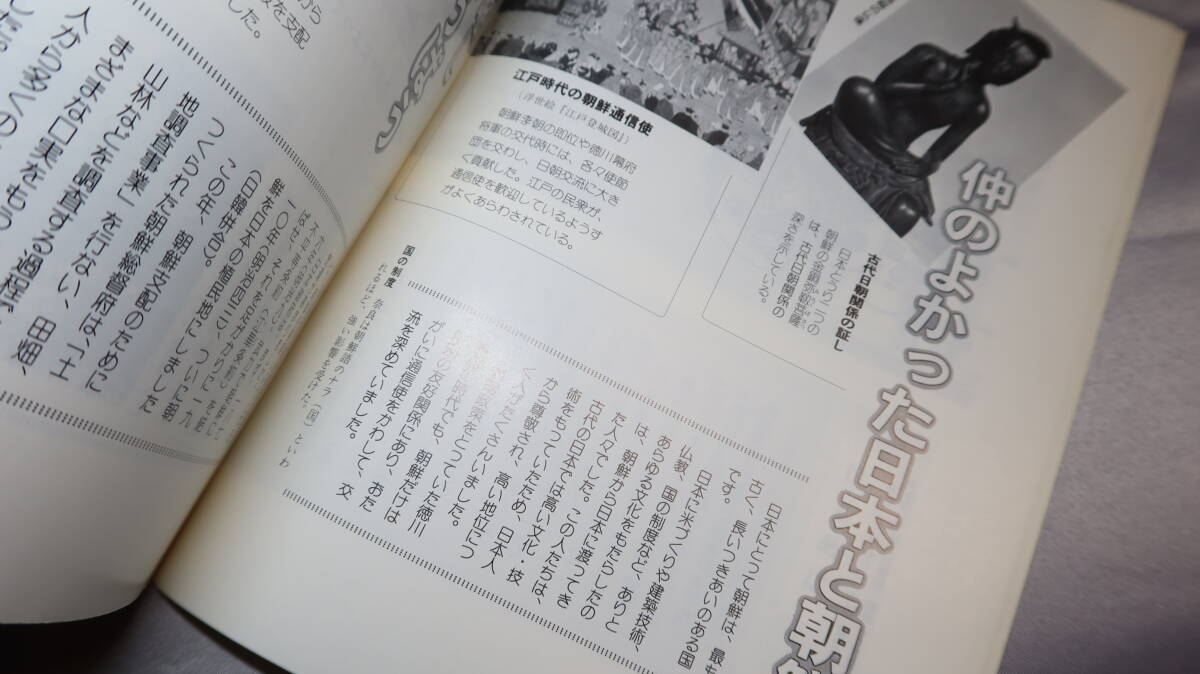 仲のよかった日本と朝
古代日朝関係の証し
日本とうり二つの
朝鮮の金銅弥勒菩薩
は、古代日朝関係の
深さを示している。
江戸時代の朝鮮通信使
(浮世絵『江戸登城図』)
朝鮮李朝の即位や徳川幕府
将軍の交代時には、各々使節
団を交わし、日朝交流に大き
く貢献した。江戸の民衆が、
通信使を歓迎しているようす
がよくあらわされている。
日本にとって朝鮮は、最も
古く、長いつきあいのある国
です。
日本に米づくりや建築技術、
仏教、国の制度など、ありと
あらゆる文化をもたらしたの
は、朝鮮から日本に渡ってき
た人々でした。この人たちは、
古代の日本では高い文化・技
術をもっていたため、日本人
から尊敬され、高い地位につ
く人がたくさんいました。
政策をとっていた徳川
時代でも、朝鮮だけは
の友好関係にあり、おた
がいに通信使をかわして、交
流を深めていました。
国の制度
奈良は朝鮮語のナラ(国)といわ
れるほど、強い影響を受けた。
から
を支配
した。
一〇年(明治四三)、ついに朝
鮮を日本の植民地にしました
(日韓併合)。
この年、朝鮮支配のために
つくられた朝鮮総督府は、「土
地調査事業」を行ない、田畑、
山林などを調査する過程で
さまざまな口実をもう
人から多くの